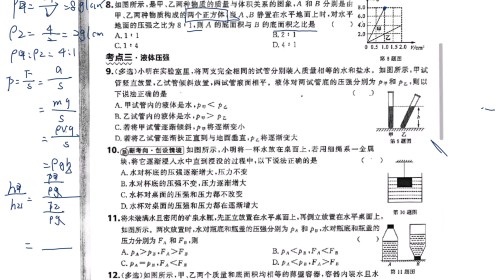 8.如图所示,是甲、乙两种物质的质量与体积关系的图象,A和B分别是由
甲、乙两种物质构成的两个正方体,A、B静置在水平地面上时,对水平
地面的压强之比为8:1,则A的底面积与B的底面积之比是 ( )
A.1:4 B.2:1
C.1:2 D.4:1
第8题图
考点三·液体压强
9.(多选)小明在实验室里,将两支完全相同的试管分别装入质量相等的水和盐水。如图所示,甲试
管竖直放置,乙试管倾斜放置,两试管液面相平。液体对两试管底的压强分别为p甲和p乙,则以
下说法正确的是 ( )
A.甲试管内的液体是水,p甲<p乙
B.乙试管内的液体是水,p甲>p乙
C.若将甲试管逐渐倾斜,p甲将逐渐变小
D.若将乙试管逐渐扶正直到与地面垂直,p乙将逐渐变大
甲 乙
第9题图
10.如图所示,小明将一杯水放在桌面上,若用细绳系一金属
块,将它逐渐浸入水中直到浸没的过程中,以下说法正确的是 ( )
A.水对杯底的压强逐渐增大,压力不变
B.水对杯底的压强不变,压力逐渐增大
C.水杯对桌面的压强和压力都不改变
D.水杯对桌面的压强和压力都在逐渐增大
第10题图
11.将未装满水且密闭的矿泉水瓶,先正立放置在水平桌面上,再倒立放置在水平桌面上,
如图所示。两次放置时,水对瓶底和瓶盖的压强分别为pA和pB,水对瓶底和瓶盖的
压力分别为FA和FB,则 ( )
A.pA>pB,FA>FB B.pA<pB,FA>FB
C.pA=pB,FA=FB D.pA<pB,FA<FB
第11题图
12.(多选)如图所示,甲、乙两个质量和底面积均相等的薄壁容器,容器内装水且水